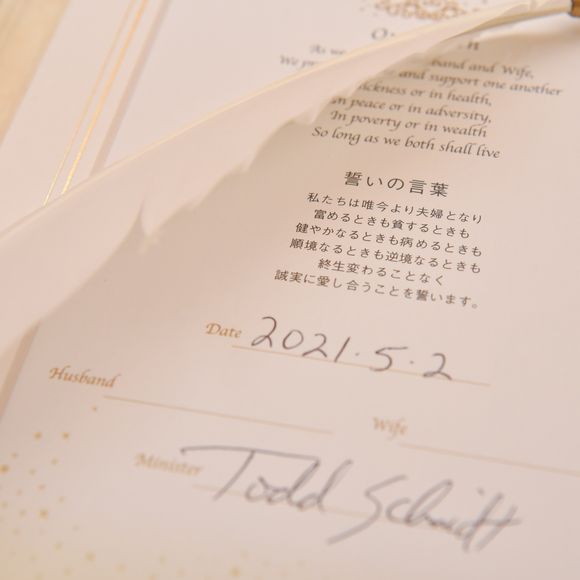 As we and Wife,
We and support one another
sickness or in health,
In peace or in adversity,
In poverty or in wealth
So long as we both shall live
誓いの言葉
私たちは唯今より夫婦となり
富めるときも貧するときも
健やかなるときも病めるときも
順境なるときも逆境なるときも
終生変わることなく
誠実に愛し合うことを誓います。
Date 2021.5.2
Husband
Wife
Minister Todd Schmitt